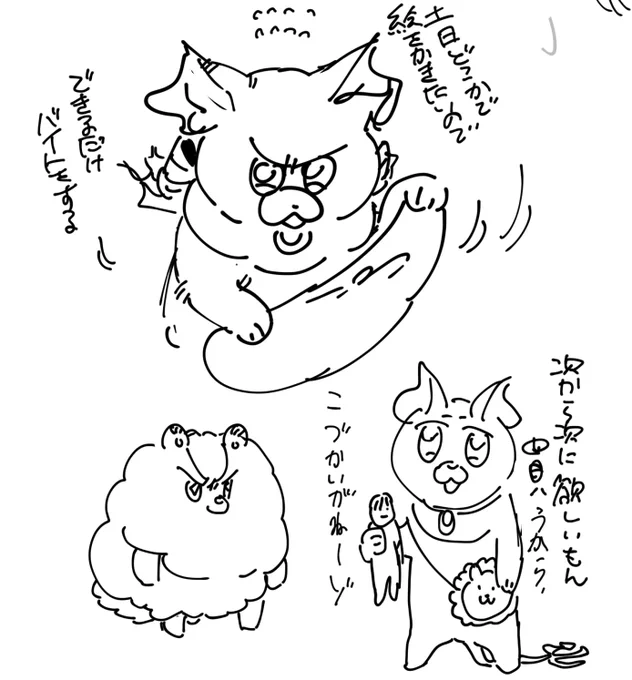 土日どこかで
絵をかきたいので
できるだけ
バイトをする
次から次に欲しいもん
買うから、
こづかいがねーぞ